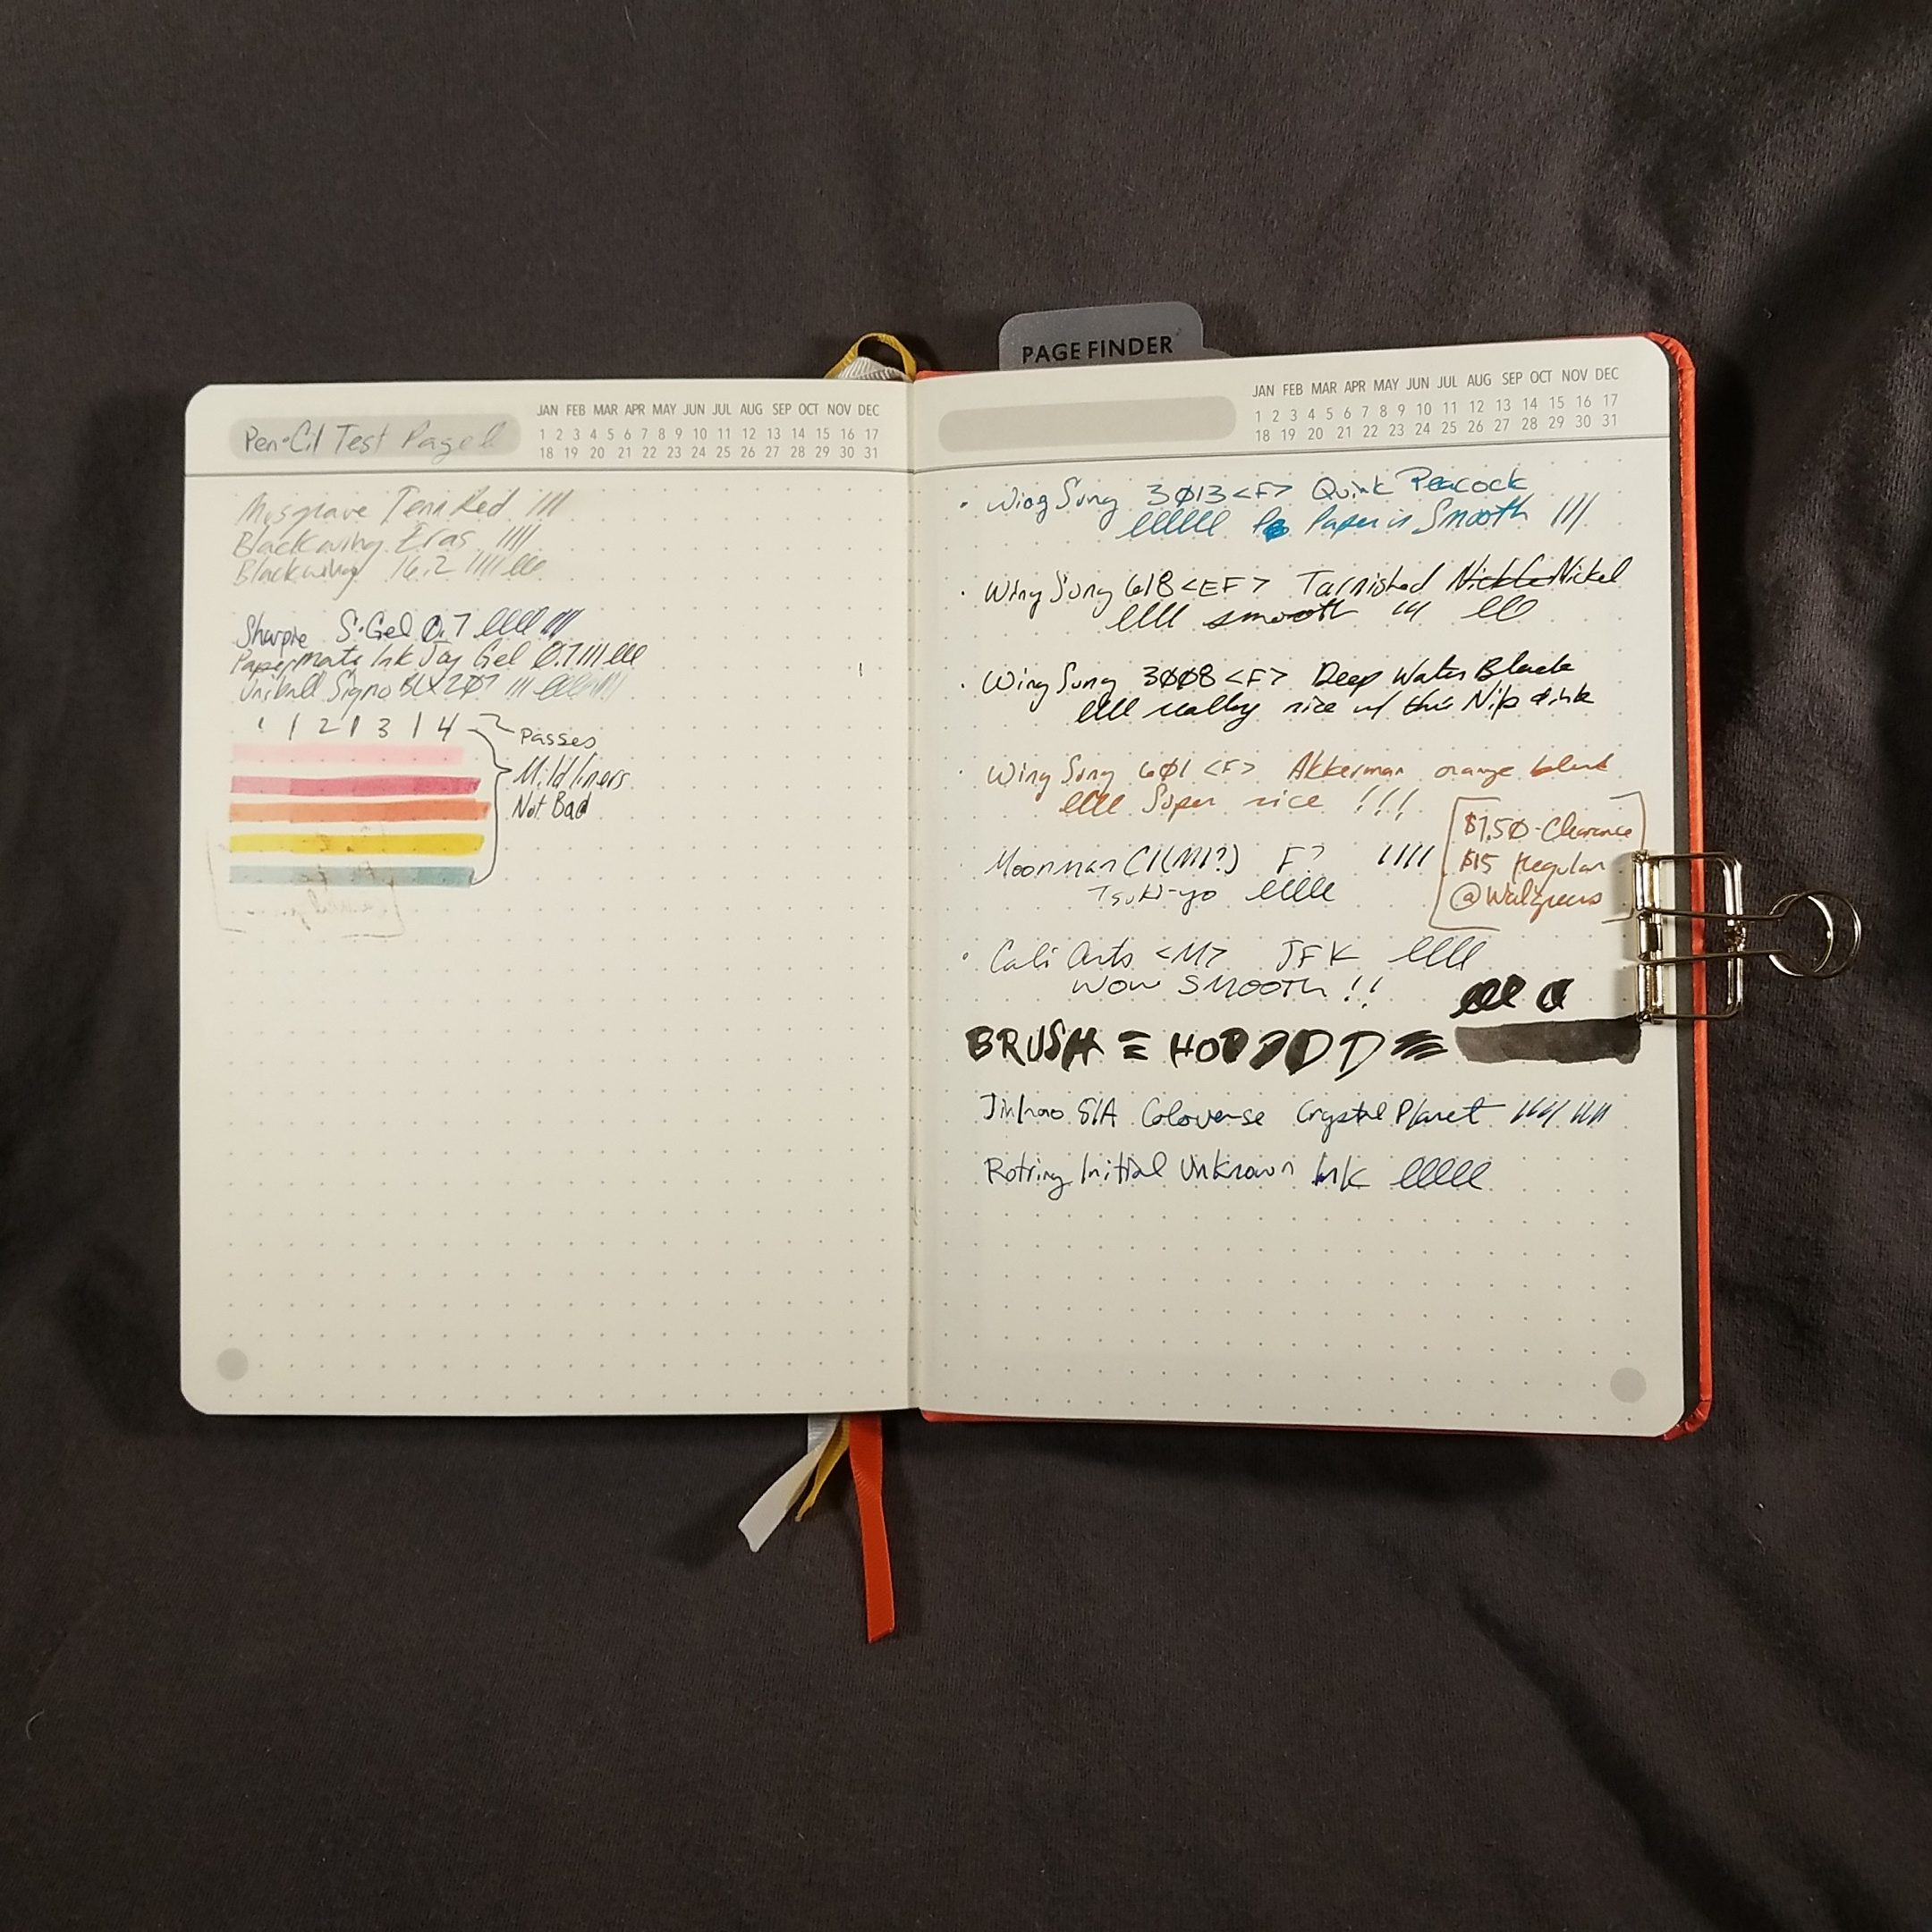 PAGE FINDER
Pen-Cil Test Page
JAN FEB MAR APR MAY JUN JUL AUG SEP OCT NOV DEC
1 2 3 4 5 6 7 8 9 10 11 12 13 14 15 16 17
18 19 20 21 22 23 24 25 26 27 28 29 30 31
Musgrave Tenn Red
Blackwing Eras
Blackwing 16.2
Sharpie S·Gel 0.7
PaperMate Ink Joy Gel 0.7
Uniball Signo BLX 207
1 | 2 | 3 | 4
Passes
Mildliners
Not Bad
JAN FEB MAR APR MAY JUN JUL AUG SEP OCT NOV DEC
1 2 3 4 5 6 7 8 9 10 11 12 13 14 15 16 17
18 19 20 21 22 23 24 25 26 27 28 29 30 31
· Wing Sung 3013 <F> Quink Peacock
Paper is Smooth
· Wing Sung 618 <EF> Tarnished Nickel
smooth
· Wing Sung 3008 <F> Deep Water Black
really nice w/ this Nib & ink
· Wing Sung 601 <F> Akkerman orange
Super nice !!!
$7.50-Clearance
$15 Regular
@Walgreens
Moonman C1(M1?) F?
Tsuki-yo
· Cali Arts <M> JFK
WOW SMOOTH!!
BRUSH
Jinhao 51A Coloverse Crystal Planet
Rotring Initial Unknown Ink